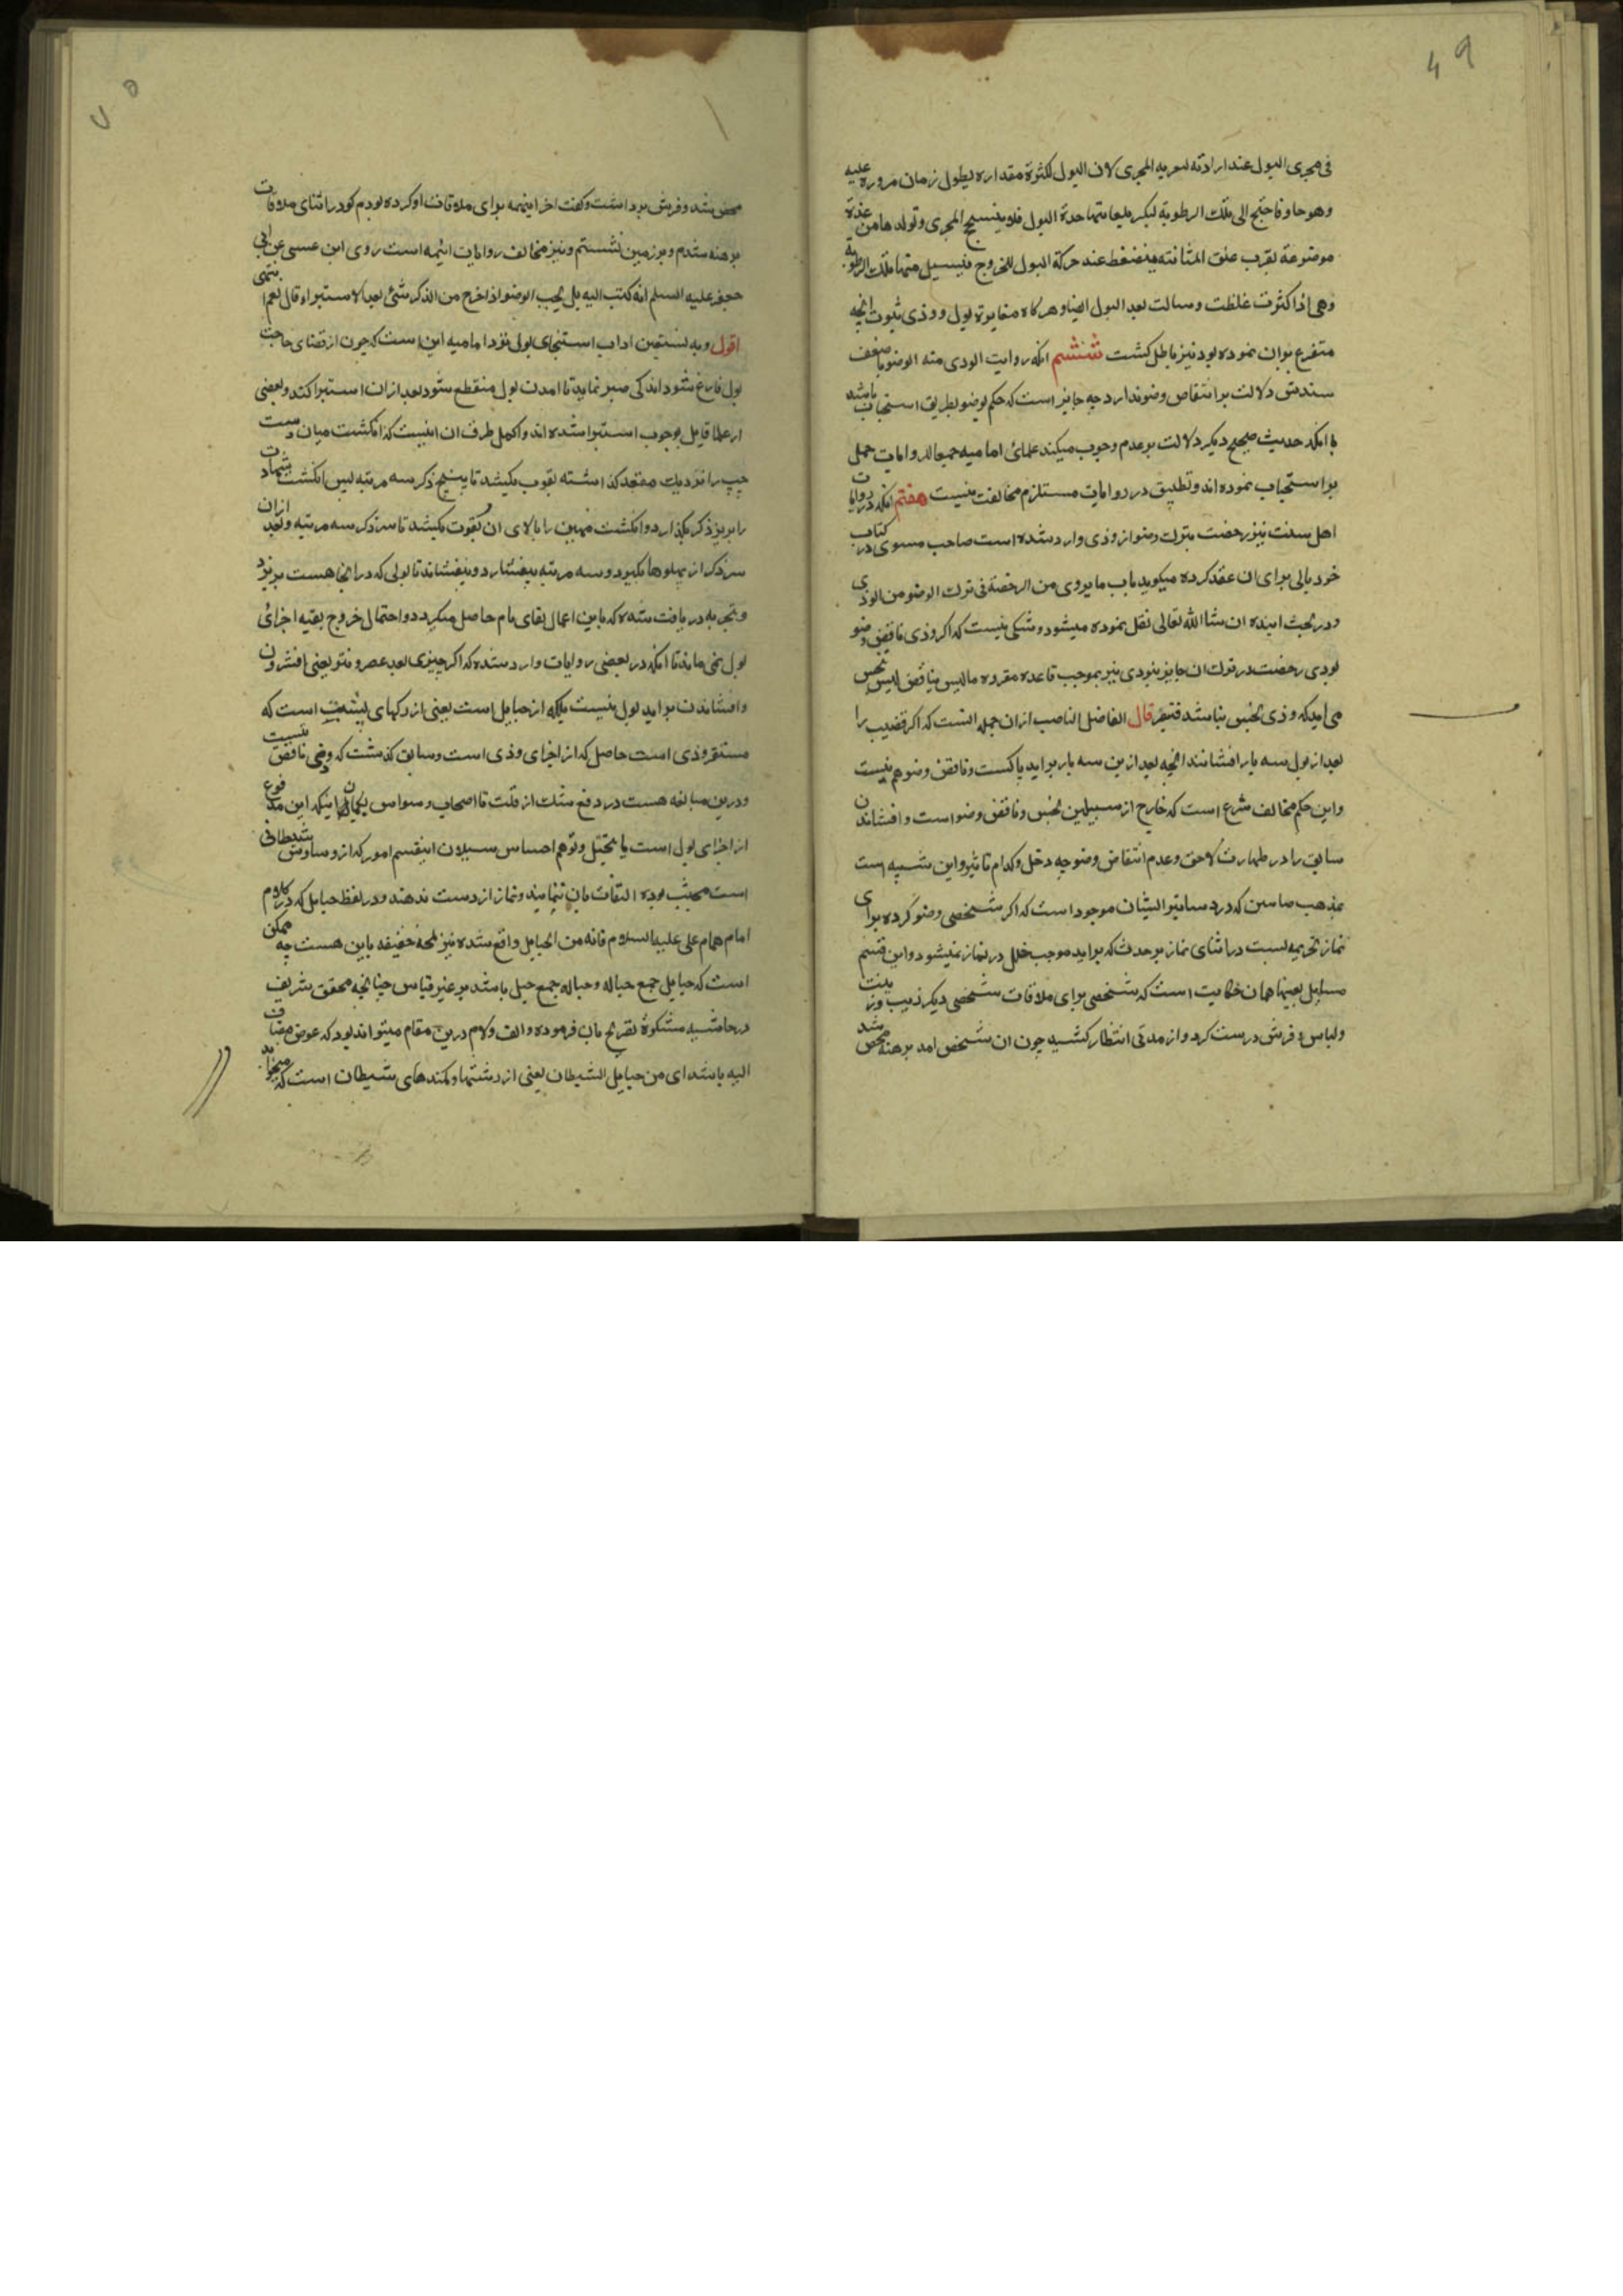 ۶۹
فی مجری البول عند ارادته لمعریه المجری لان البول لکثرة مقداره یطول زمان مروره علیه
وهو حاد فاحتیج الی تلک الرطوبة لیکسر بلعابیتها حدة البول فلا ینسحج المجری وتولدها من غدة
موضوعة بقرب عنق المثانة فینضغط عند حرکة البول للخروج فیسیل منها تلک الرطوبة
وهی اذا کثرت غلظت وسالت بعد البول ایضا وهرکاه مغایرة بول و وذی ثبوت انچه
متفرع بران نموده بود نیز باطل کشت ششم انکه روایت الودی منه الوضو با ضعف
سندش دلالت بر انتقاض وضو ندارد چه جایز است که حکم بوضو بطریق استحباب باشد
با انکه حدیث صحیح دیکر دلالت بر عدم وجوب میکند علمائ امامیه جمیعا للروایات حمل
بر استحباب نموده اند و تطبیق در روایات مستلزم مخالفت نیست هفتم انکه در روایات
اهل سنت نیز رخصت بترک وضو از وذی وارد شده است صاحب مسوی در کتاب
خود بابی برای ان عقد کرده میکوید باب ما یروی من الرخصة فی ترک الوضو من الودی
ودر بحث اینده ان شا الله تعالی نقل نموده میشود و شکی نیست که اکر وذی ناقض وضو
بودی رخصت در ترک ان جایز نبودی نیز بموجب قاعده مقرره ما لیس بناقض لیس بنجس
می اید که وذی نجس نباشد فتبصر قال الفاضل الناصب ازان جمله انست که اکر قضیب را
بعد از بول سه بار افشانند انچه بعد ازین سه بار براید پاکست وناقض وضو هم نیست
واین حکم مخالف شرع است که خارج از سبیلین نجس وناقض وضو است وافشاندن
سابق را در طهارت لاحق وعدم انتقاض وضو چه دخل وکدام تاثیر واین شبیه است
بمذهب صابین که در دساتیر ایشان موجود است که اکر شخصی وضو کرده برای
نماز تحریمه بست در اثنای نماز هر حدث که براید موجب خلل در نماز نمیشود و این قسم
مسایل بعینها همان حکایت است که شخصی برای ملاقات شخصی دیکر زیب وزینت
ولباس و فرش درست کرد و از مدتی انتظار کشید چون ان شخص امد برهنه محض شد
۷۰
محض شد وفرش برداشت وکفت اخر اینهمه برای ملاقات او کرده بودم کو در اثنای ملاقات
برهنه شدم و بر زمین نشستم ونیز مخالف روایات ائمه است روی ابن عیسی عن ابی
جعفر علیه السلم انه کتب الیه هل یجب الوضو اذا خرج من الذکر شئ بعد الاستبراء قال نعم انتهی
اقول وبه نستعین اداب استنجای بولی نزد امامیه این است که چون از قضای حاجت
بول فارغ شود اندکی صبر نماید تا امدن بول منقطع شود بعد ازان استبرا کند وبعضی
از علما قایل بوجوب استبرا شده اند واکمل طرق ان اینست که انکشت میان دست
چپ را نزدیک مقعد کذاشته بقوت بکشد تا بیخ ذکر سه مرتبه پس انکشت شهادت
را بزیر ذکر بکذارد وانکشت مهین را بالای ان بقوت بکشد تا سر ذکر سه مرتبه وبعد ازان
سر ذکر از پهلوها بکیرد وسه مرتبه بیفشارد وبیفشاند تا بولی که در انجا هست بریزد
و بتجربه دریافت شده که باین اعمال نقای تام حاصل میکردد واحتمال خروج بقیه اجزائ
بول نمی ماند تا انکه در بعضی روایات وارد شده که اکر چیزی بعد عصر ونتر یعنی افشردن
وافشاندن براید بول نیست بلکه از حبایل است یعنی از رکهای پشت است که
مستقر وذی است حاصل که از اجزای وذی است وسابق کذشت که وذی ناقض نیست
ودرین مبالغه هست در دفع شک از قلت تا اصحاب وسواس بکمان اینکه این مدفوع
از اجزای بول است یا بتخیل وتوهم احساس سیلان اینقسم امور که از وساوس شیطانی
است مجتنب بوده التفات بان ننمایند ونماز از دست ندهند ودر لفظ حبایل که در کلام
امام همام علی علیه السلام فانه من الحبایل واقع شده نیز لمحهٔ خفیفه باین هست چه ممکن
است که حبایل جمع حباله وحباله جمع حبل باشد بر غیر قیاس چنانچه محقق شریف
در حاشیه مشکوة تصریح بان فرموده والف ولام درین مقام میتواند بود که عوض مضاف
الیه باشد ای من حبایل الشیطان یعنی از رشتها وکمندهای شیطان است که میخواهد